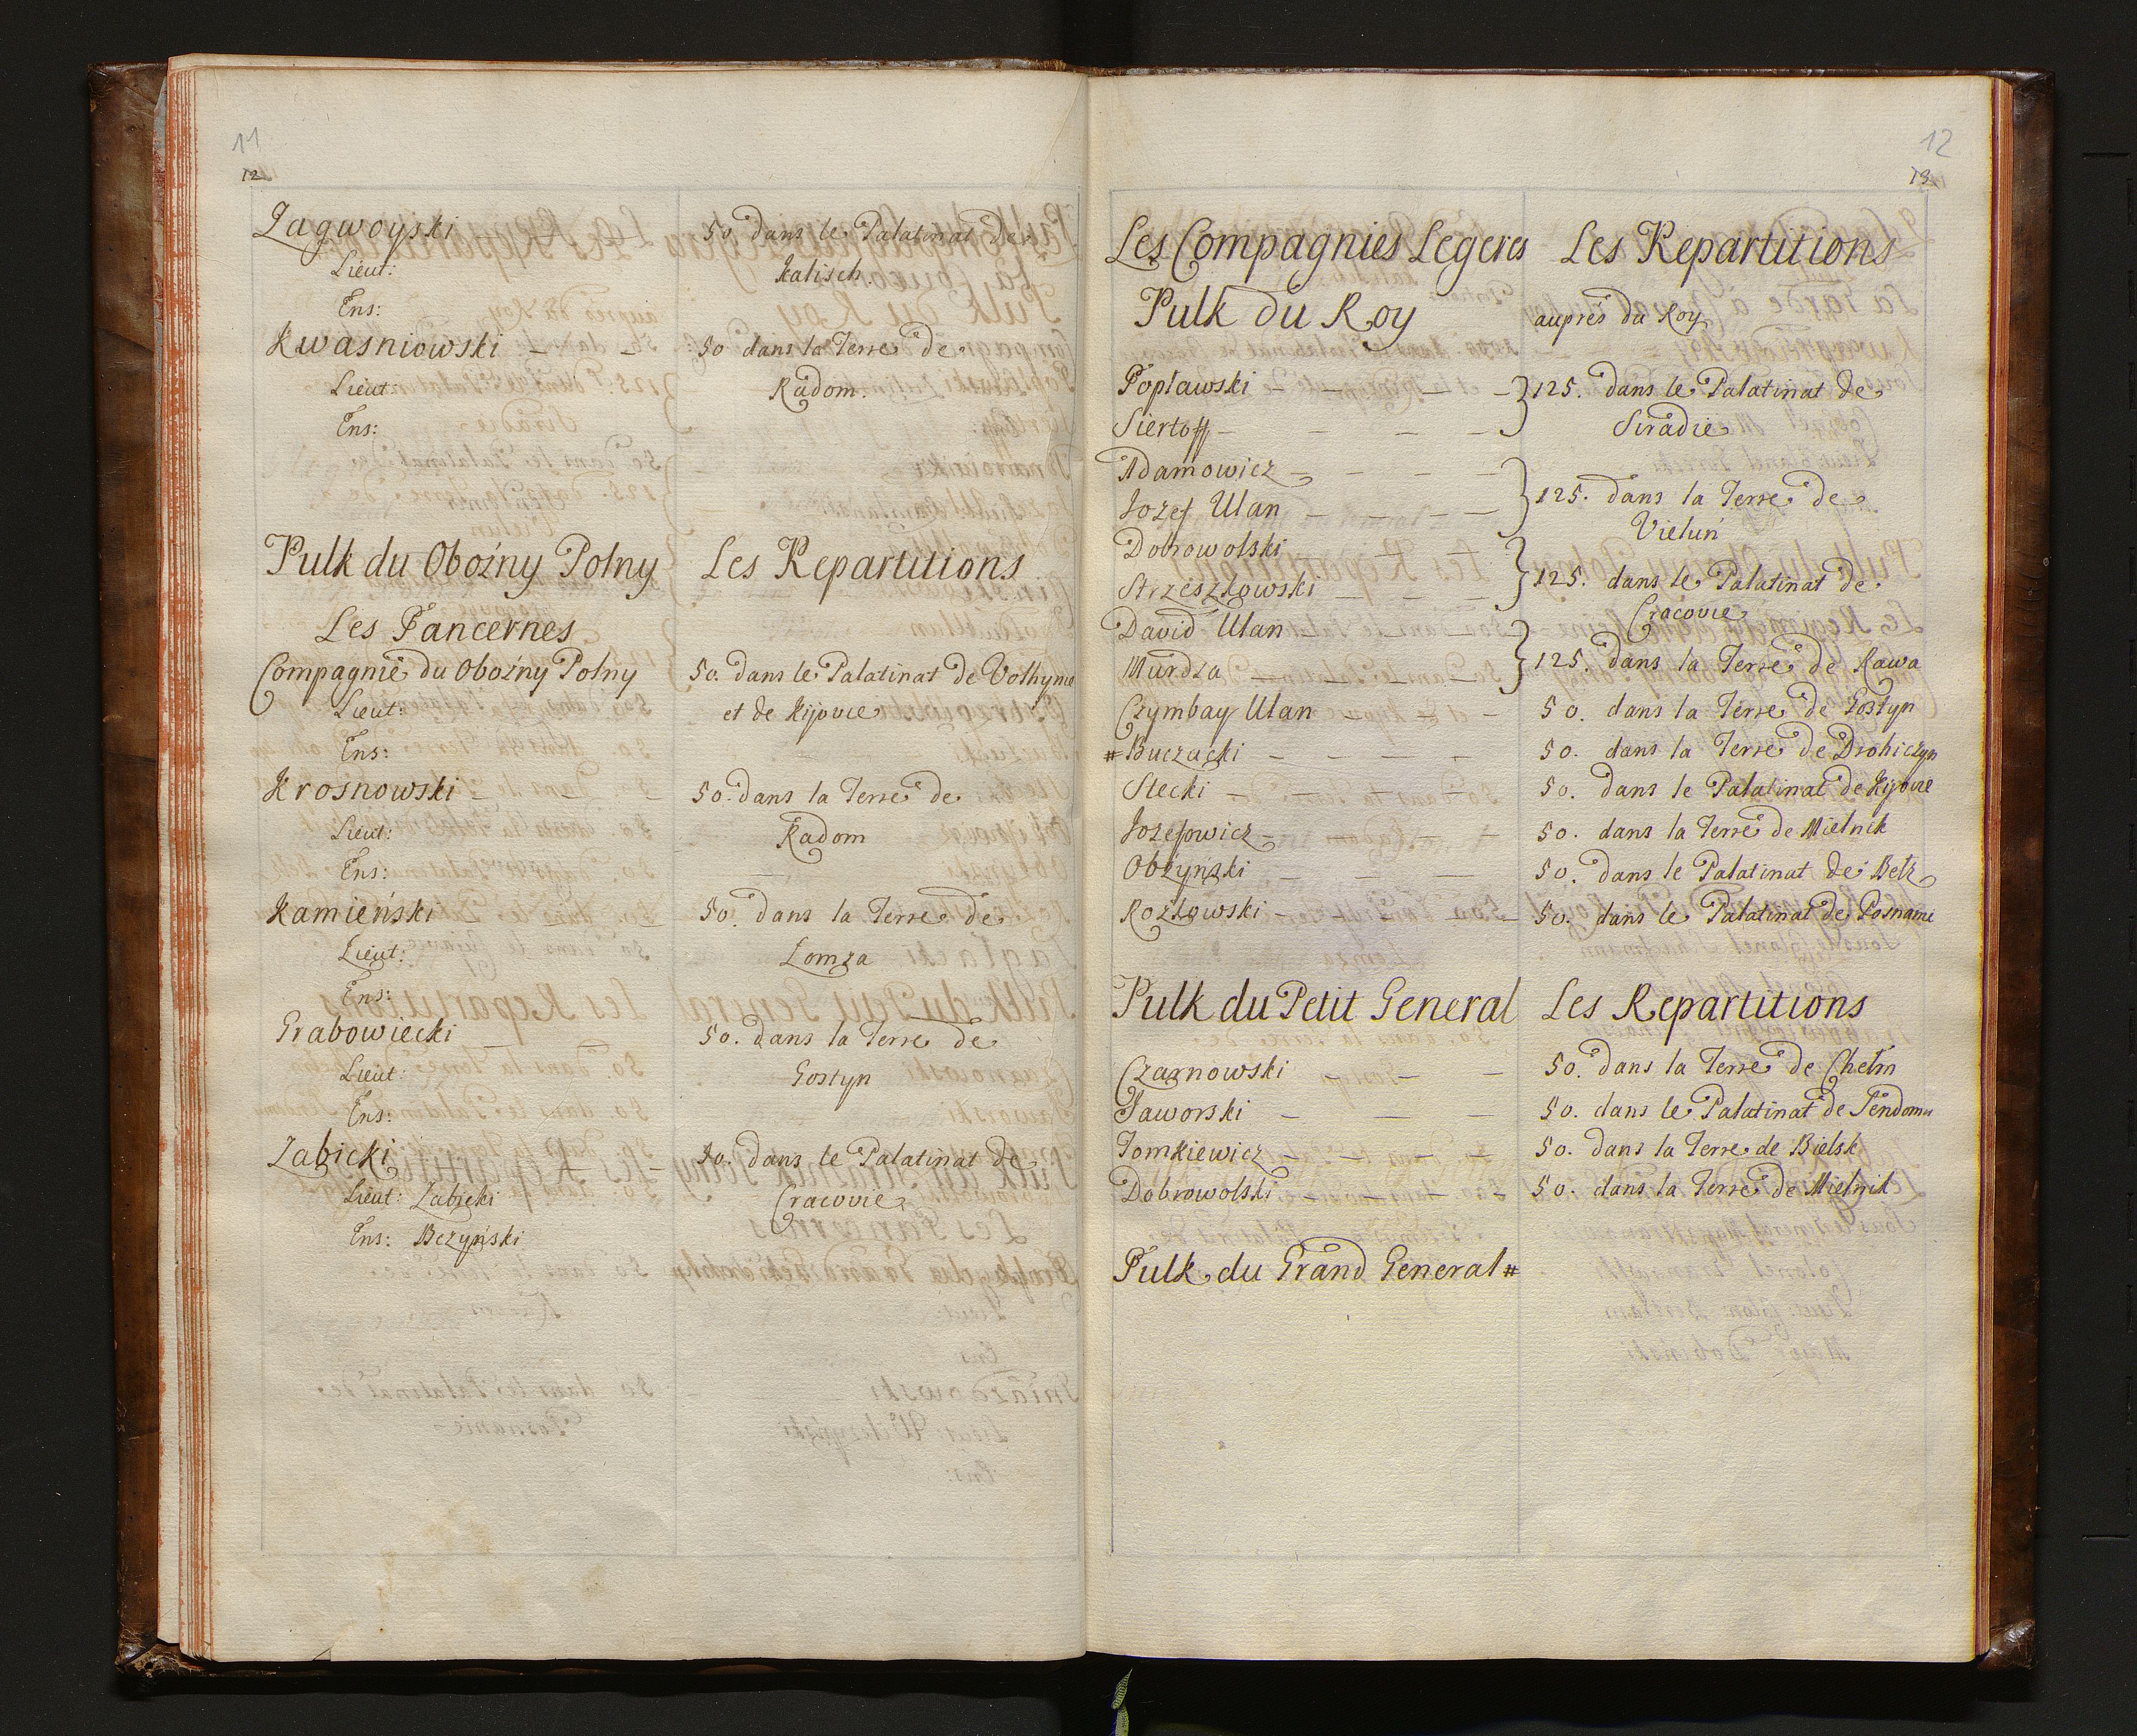 11
12
Zagwoyski — — 50 dans le Palatinat de
Lieut: Kalisch.
Ens:
Kwasniowski — — 50 dans la Terre de
Lieut: Radom.
Ens:
Pulk du Oboźny Polny Les Repartitions
Les Pancernes
Compagnie du Oboźny Polny 50. dans le Palatinat de Volhynie
Lieut: et de Kijovie
Ens:
Krosnowski — — — 50. dans la Terre de
Lieut: Radom
Ens:
Kamieński — — 50. dans la Terre de
Lieut: Lomza
Ens:
Grabowiecki — — 50. dans la Terre de
Lieut: Gostyn
Ens:
Zabicki 50. dans le Palatinat de
Lieut: Zabicki Cracovie
Ens: Bczyński
12
13
Les Compagnies Legeres Les Repartitions
Pulk du Roy auprès du Roy
Popławski — — — — } 125. dans le Palatinat de
Siertoff — — — — Siradie
Adamowicz — — — —
Jozef Ulan — — — — } 125. dans la Terre de
Vieluń
Dobrowolski — —
Strzeszkowski — — — } 125. dans le Palatinat de
Cracovie
David Ulan — — —
Murdza — — — — } 125. dans la Terre de Rawa
Czymbay Ulan — — — 50. dans la Terre de Gostyn
# Buczacki — — — — 50. dans la Terre de Drohiczyn
Stecki — — — — 50. dans le Palatinat de Kijovie
Jozefowicz — — — — 50. dans la Terre de Mielnik
Obżyński — — — 50. dans le Palatinat de Betz
Kozłowski — — — — 50. dans le Palatinat de Posnanie
Pulk du Petit General Les Repartitions
Czarnowski — — — 50. dans la Terre de Chelm
Jaworski — — — 50. dans le Palatinat de Sendomir
Tomkiewicz — — — — 50. dans la Terre de Bielsk
Dobrowolski — — — — 50. dans la Terre de Mielnik
Pulk du Grand General #